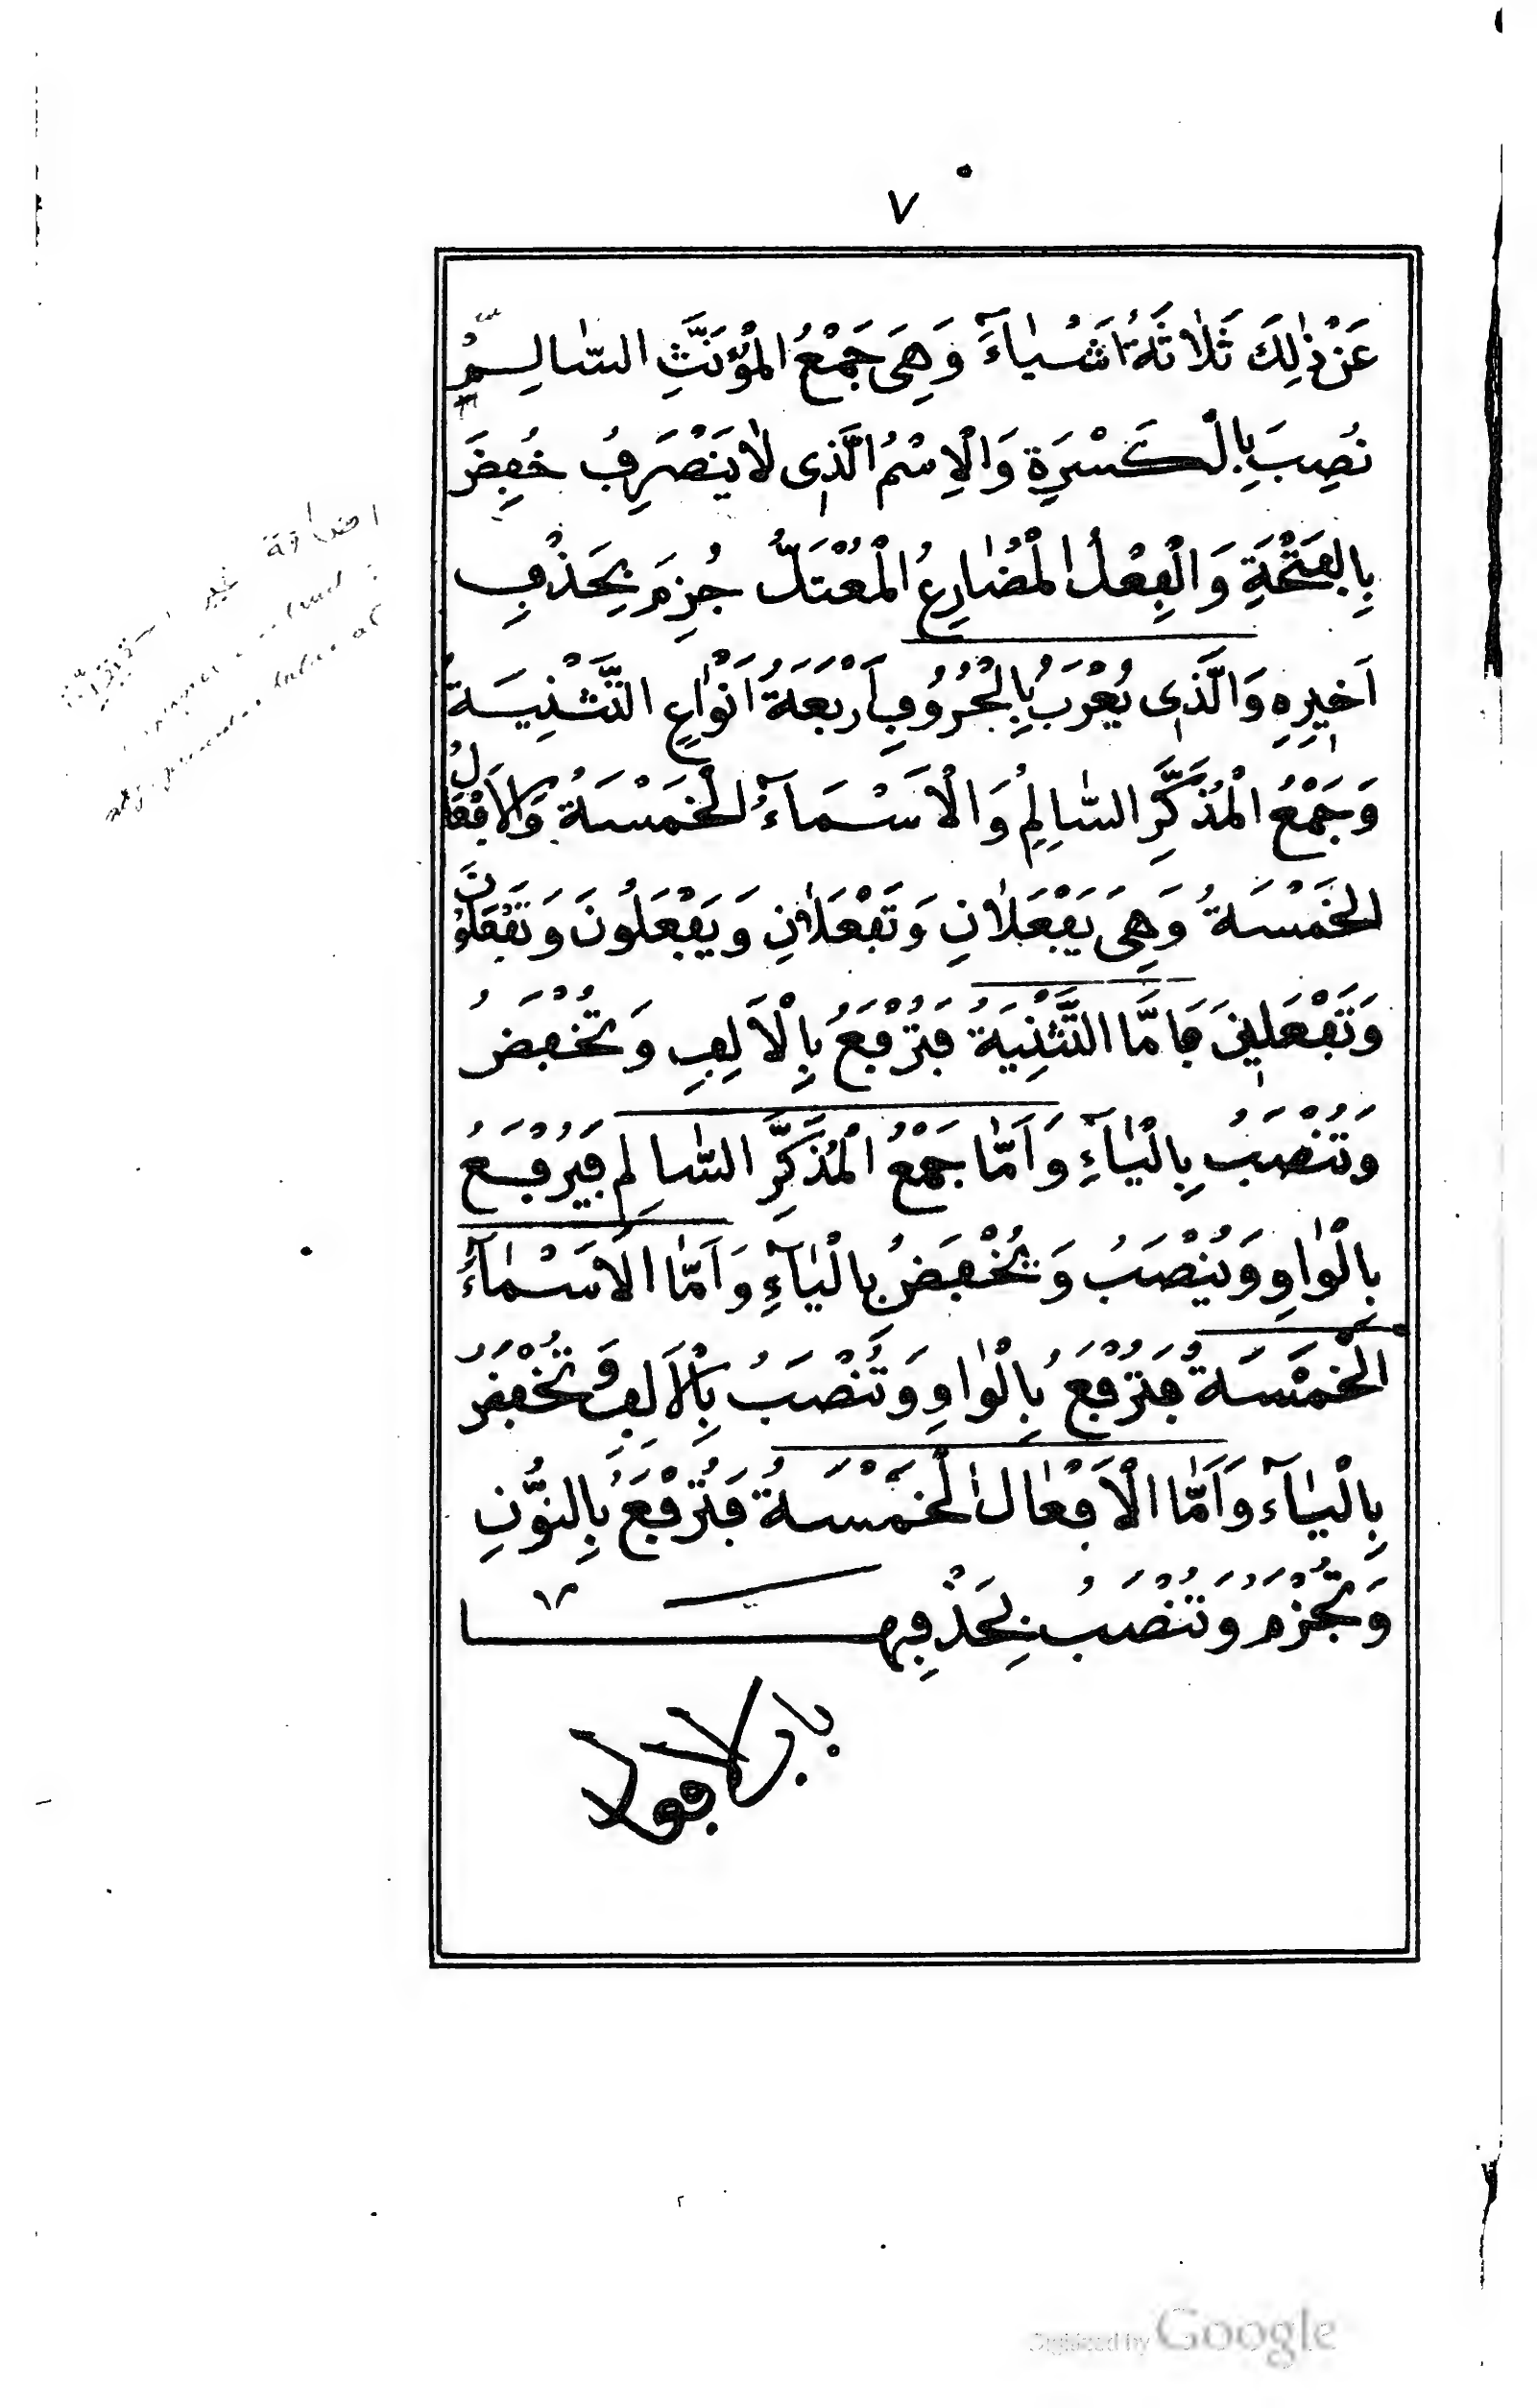 ٧
عَنْ ذٰلِكَ ثَلاٰثَةُ اَشْيٰاءَ وَهِىَ جَمْعُ الْمُؤَنَّثِ السّٰالِمْ
نُصِبَ بِالْكَسْرَةِ وَالْاِسْمُ الَّذِى لاٰ يَنْصَرِفُ خُفِضَ
بِالفَتْحَةِ وَالْفِعْلُ الْمُضٰارِعُ الْمُعْتَلُّ جُزِمَ بِحَذْفِ
اَخِيرِهِ وَالَّذِى يُعْرَبُ بِالْحُرُوفِ اَرْبَعَةُ اَنْوٰاعٍ التَّثْنِيَةُ
وَجَمْعُ الْمُذَكَّرِ السّٰالِمِ وَالْاَسْمَآءُ الْخَمْسَةُ وَالاَفْعَالُ
الخَمْسَةُ وَهِىَ يَفْعَلاٰنِ وَتَفْعَلاٰنِ وَيَفْعَلُونَ وَتَفْعَلُونَ
وَتَفْعَلِينَ فَاَمَّا التَّثْنِيَةُ فَتُرْفَعُ بِالْاَلِفِ وَتُخْفَضُ
وَتُنْصَبُ بِالْيٰآءِ وَاَمّٰا جَمْعُ الْمُذَكَّرِ السّٰالِمِ فَيُرْفَعُ
بِالْوٰاوِ وَيُنْصَبُ وَيُخْفَضُ بِالْيٰآءِ وَاَمّٰا الاَسْمٰآءُ
الْخَمْسَةُ فَتُرْفَعُ بِالْوٰاوِ وَتُنْصَبُ بِالْاَلِفِ وَتُخْفَضُ
بِالْيٰآءِ وَاَمّٰا الْاَفْعٰالُ الْخَمْسَةُ فَتُرْفَعُ بِالنُّونِ
وَتُجْزَمُ وَتُنْصَبُ بِحَذْفِهَا
باب الافعال
اضافة غير
Digitized by Google